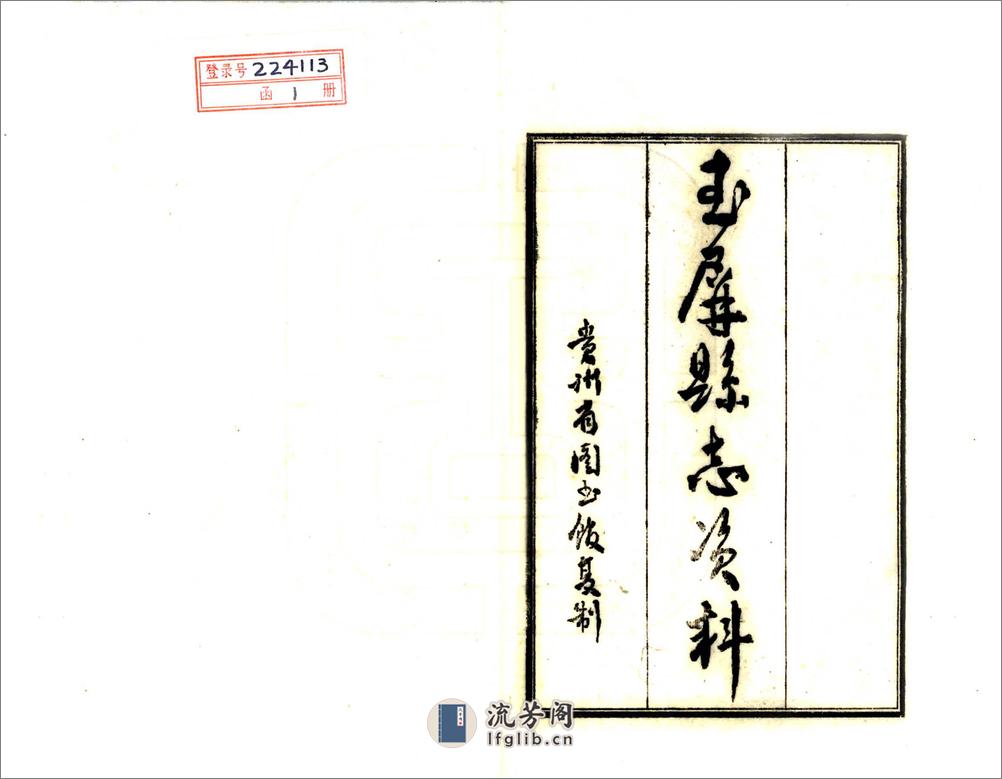 登录号 224113
函 1 册
玉屏縣志资料
贵州省图书馆复制
流芳阁
lfglib.cn